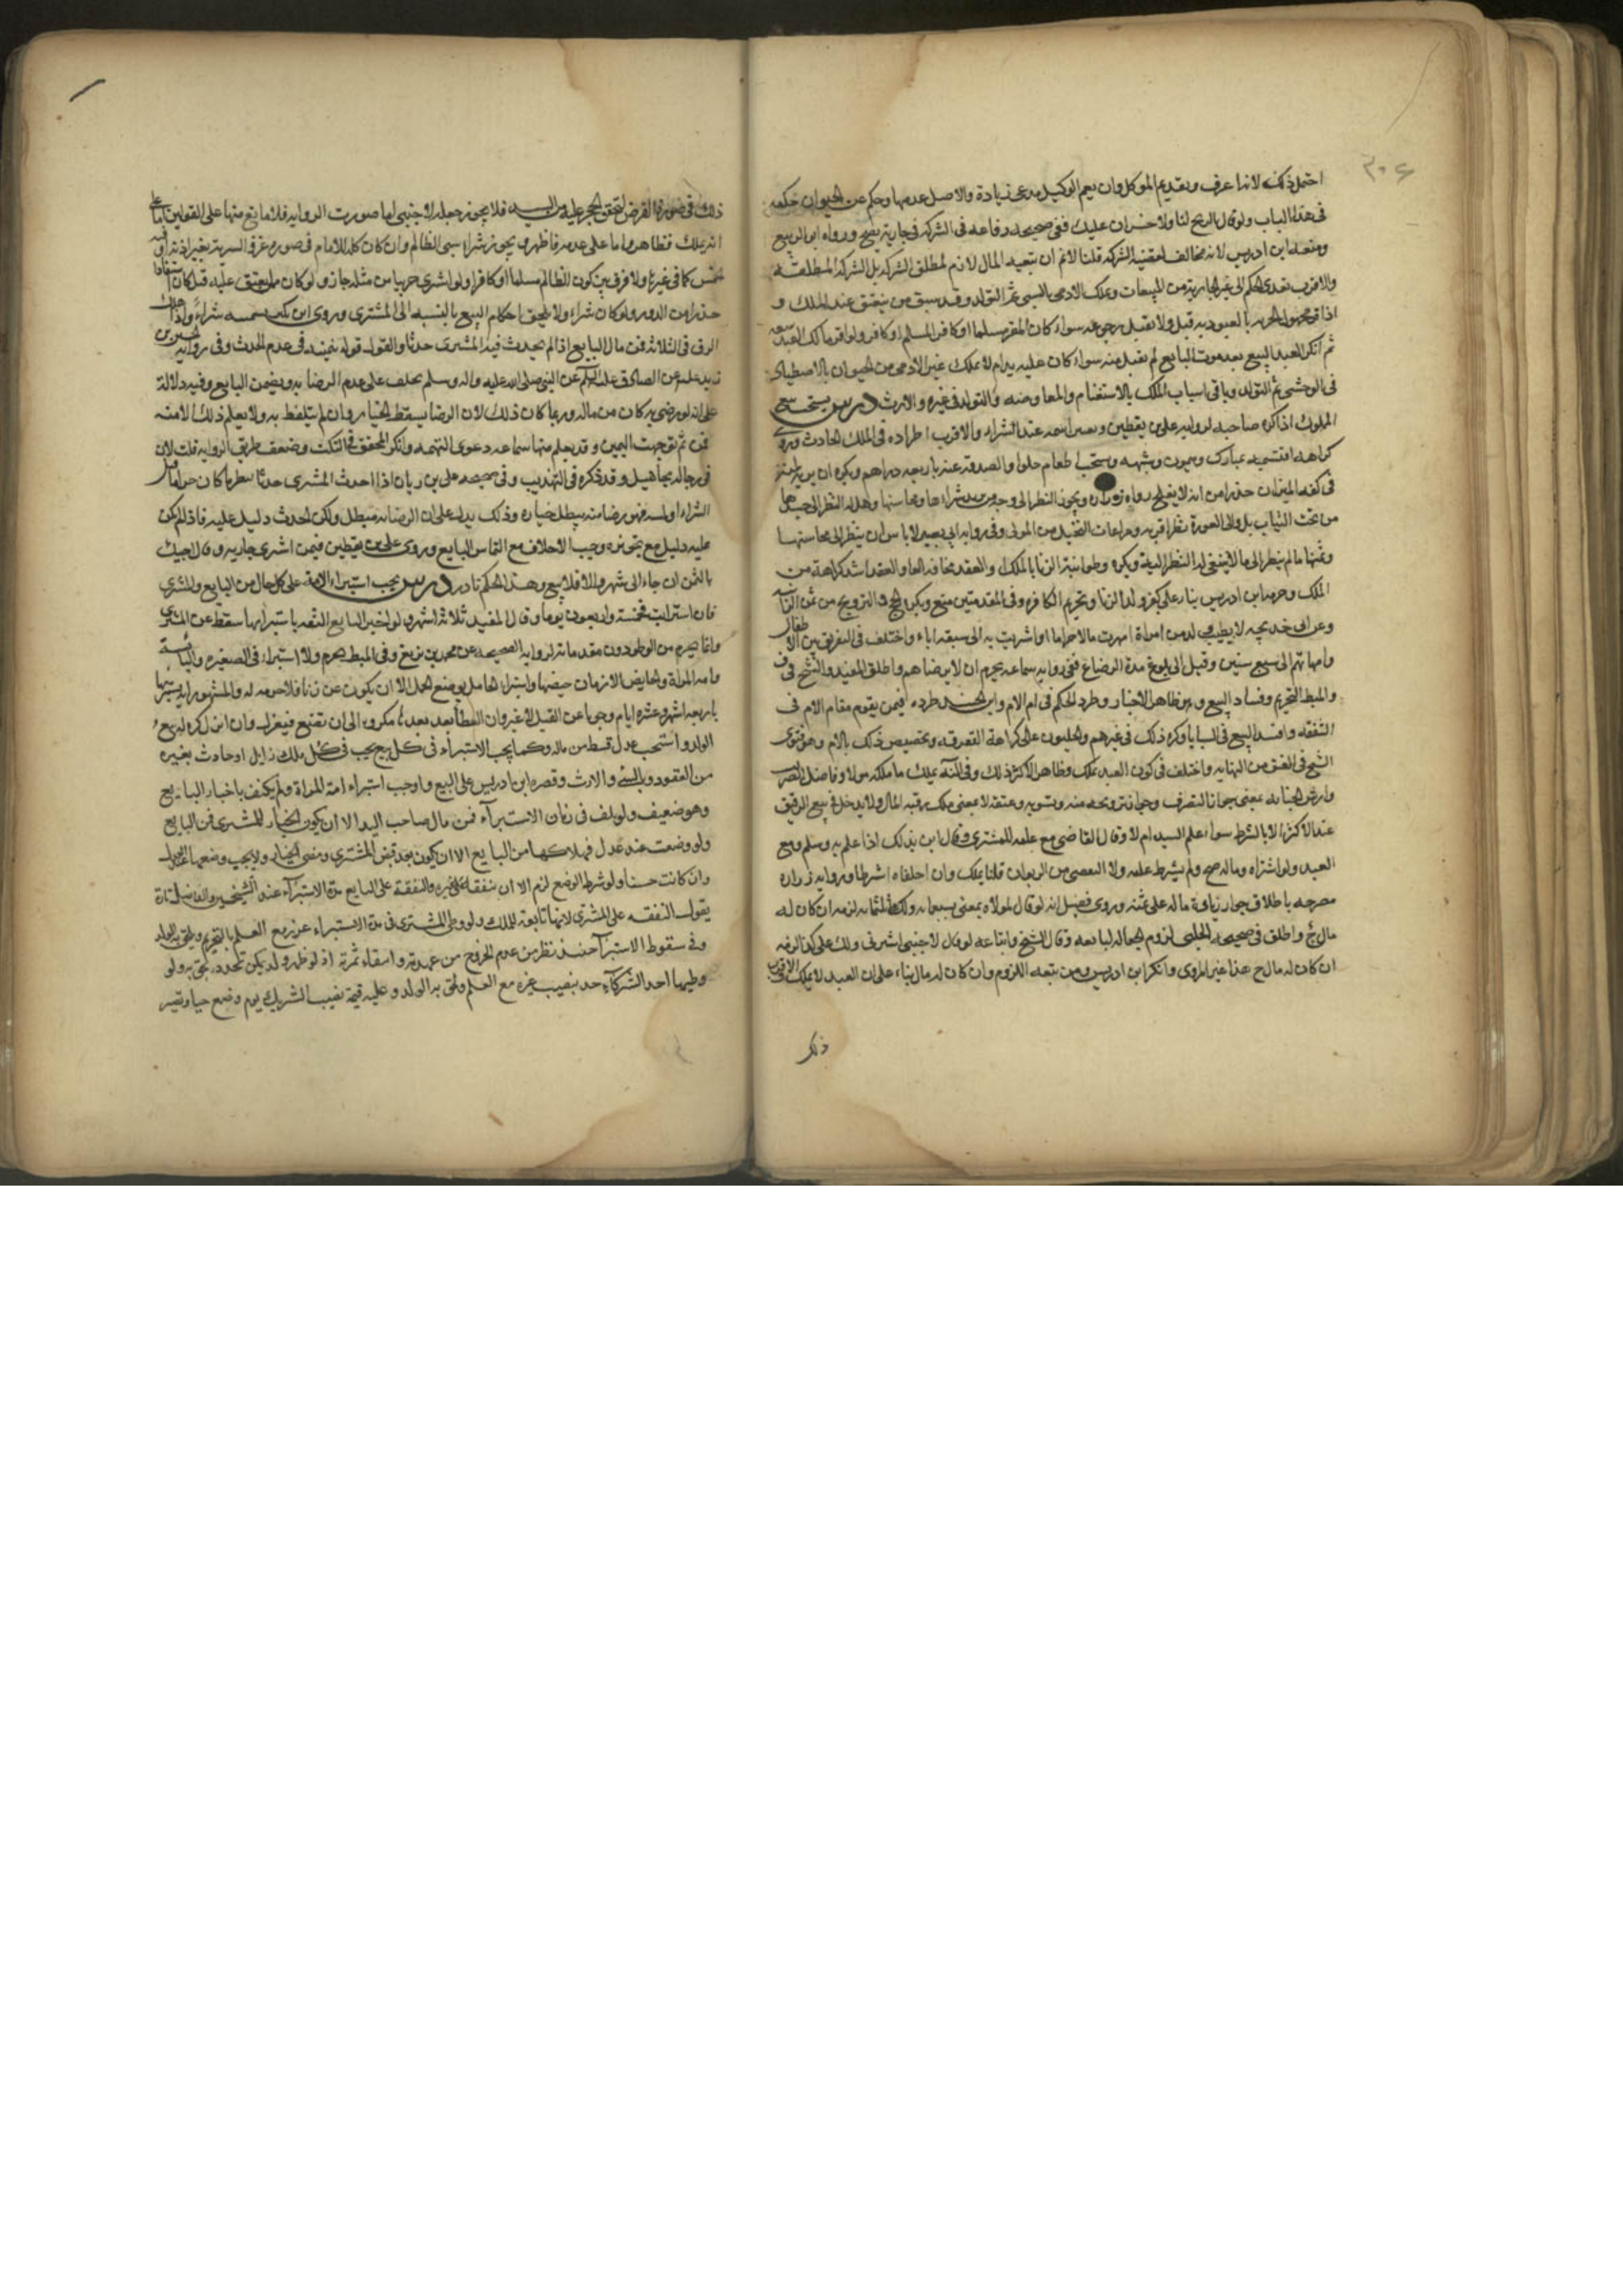 ٣٠٤
احتمل ذلك لانها عرف وبقديم الموكل وان يعم الوكيل مدعى زيادة والاصل عدمها وحكم عن الحيوان حكمه
في هذا الباب ولو قال الربح لنا ولا خسران عليك ففي صحيحه رفاعه في الشركه في جارية يصح ورواه ابو الربيع
ومنعه ابن ادريس لانه مخالف لقضية الشركه قلنا لا نم ان تبعيه المال لازم لمطلق الشركه بل الشركه المطلقه
والاقرب تعدى الحكم الى غير الجارية من المبيعات ويملك الادمى بالسبى ثم التولد وقد سبق من ينعتق عند الملك و
اذا اقر مجهول الحرية بالعبوديه قبل ولا يقبل رجوعه سواء كان المقر مسلما او كافر المسلم او كافر ولو اقر مالك العبد
ثم انكر العبد البيع بعد موت البايع لم يقبل منه سواء كان عليه يد ام لا يملك غير الادمى من الحيوان بالاصطياد
في الوحشى ثم التولد وباقى اسباب الملك بالاستغنام والمعاوضه والتولد في غيره والارث درس يستحب بيع
المملوك اذا كره صاحبه لرواية على بن يقطين وتغيير اسمه عند الشراء والاقرب اطراده في الملك الحادث وروى
كراهة تسميه بمبارك وميمون وشبهه ويستحب اطعام حلوا والصدقه عنه باربعه دراهم ويكره ان يريه ثمنه
في كفه الميزان حذرا من انه لا يفلح رواه زراره ويجوز النظر الى وجه من يريد شراءها ومحاسنها وهل له النظر الى جسدها
من تحت الثياب بل والى العورة نظرا قربه ومراعات التحليل من المولى وفي روايه ابي بصير لا باس ان ينظر الى محاسنها
ويمسها ما لم ينظر الى ما لا ينبغي له النظر اليه ويكره وطؤ ابنة الزنا بالملك والعقد مخافه العار والعقد اشد كراهة من
الملك وحرمه ابن ادريس بناء على كفر ولد الزنا وتحريم الكافره وفي المقدمتين منع ويكره الحج والتزويج من ثمن الزانيه
وعن ابي خديجه لا يطيب ولد من امراة امهرت مالا حراما او اشتريت به الى سبعه اباء واختلف في التفريق بين الاطفال
وامهاتهم الى سبع سنين وقيل الى بلوغ مدة الرضاع ففى رواية سماعه يحرم الا برضاهم واطلق المفيد والشيخ في ف
والمبسوط التحريم وفساد البيع وهو ظاهر الاخبار وطرد الحكم في ام الام وابن الجنيد طرده فيمن يقوم مقام الام في
الشفقه وافسد البيع في السبايا وكره ذلك في غيرهم والحليون على كراهة التفرقه وتخصيص ذلك بالام وهو فتوى
الشيخ في العتق من النهايه واختلف في كون العبد يملك وظاهر الاكثر ذلك وفي النهايه يملك ما ملكه مولاه وفاضل الضريبه
وارش الجنايه بمعنى جواز التصرف وجوازتزويجه منه وتسريه وعتقه لا بمعنى ملك رقبه المال ولا يدخل في بيع الرقيق
عند الاكثر الا بالشرط سواء علم السيد ام لا وقال القاضى مع علمه للمشترى وقال ابن الجنيد كذلك اذا علم به وسلم وبيع
العبد ولو اشتراه وماله صح ولم يشترط علمه ولا التفصى من الربا ان قلنا يملك وان احلناه اشترطا وروايه زراره
مصرحه باطلاق جواز زيادة ماله على ثمنه وروى فضيل انه لو قال لمولاه بعنى بسبعمايه ولك ثلثمايه لزمه ان كان له
مال ح واطلق في صحيحه الحلبي لزوم الجعاله لبايعه وقال الشيخ واتباعه لو قال لاجنبى اشترنى ولك على كذا لزمه
ان كان له مال ح هذا غير المروى وانكر ابن ادريس ومن تبعه اللزوم وان كان له مال بناء على ان العبد لا يملك الاقرب
ذلك
ذلك في صورة الفرض لتحقق الحجر عليه من السيد فلا يجوز جعله لاجنبى اما صورت الروايه فلا مانع منها على القولين اما على
انه يملك فظاهر واما على عدمه فاظهر ويجوز شراء سبى الظالم وان كان كله للامام في صورة غزو السرية بغير اذنه او فيه
خمس كما في غيرها ولا فرق بين كون الظالم مسلما او كافرا ولو اشترى حربيا من مثله جاز ولو كان ممن ينعتق عليه قيل كان استنقاذا
حذرا من الدور ولو كان شراء ولا يلحق احكام البيع بالنسبه الى المشترى وروى ابن بكير تسميه شراء واذا هلك
الرق في الثلاثه فمن مال البايع اذا لم يحدث فيه المشترى حدثا والقول قوله بيمينه في عدم الحدث وفي روايه حسين بن
زيد عن الصادق عليه السلام عن النبي صلى الله عليه واله وسلم يحلف على عدم الرضا به ويضمن البايع وفيه دلالة
على انه لو رضى به كان من ماله وربما كان ذلك لان الرضا يسقط الخيار وان لم يتلفظ به ولا يعلم ذلك الا منه
فمن ثم توجهت اليمين وقد يعلم منها سماعه دعوى التهمه وانكر المحقق في النكت وضعف طريق الروايه قلت لان
في رجاله مجاهيل وقد ذكره في التهذيب وفي صحيحه على بن رياب اذا احدث المشترى حدثا نظر ما كان حراما قبل
الشراء او لمسه فهو رضا منه يبطل خياره وذلك يدل على ان الرضا به مبطل ولكن الحدث دليل عليه فاذا لم يكن
عليه دليل مع تجويزه وجب الاحلاف مع التماس البايع وروى على بن يقطين فيمن اشترى جاريه وقال اجيئك
بالثمن ان جاء الى شهر والا فلا بيع وهذا الحكم نادر درس يجب استبراء الامة على كل حال من البايع والمشترى
فان استرابت فخمسة واربعون يوما وقال المفيد ثلاثة اشهر ولو اخبر البايع الثقه باستبرائها سقط عن المشترى
وانما يحرم من الوطى دون مقدماته لروايه الصحيحه عن محمد بن بزيع وفي المبسوط يحرم ولا استبراء في الصغيره واليائسة
وامه المراة والحايض الا زمان حيضها واستبراء الحامل بوضع الحمل الا ان يكون عن زنا فلا حرمه له والمشهور انه يستبريها
باربعه اشهر وعشرة ايام وجوبا عن القبل لا غير وان الوطأ بعد بعد ها مكروه الى ان تضع فيعزل وان انزل كره له بيع
الولد واستحب عزل قسط من ماله وكما يجب الاستبراء في كل بيع يجب في كل ملك زايل او حادث بغيره
من العقود وبالسبى والارث وقصره ابن ادريس على البيع واوجب استبراء امة المراة ولم يكتف باخبار البايع
وهو ضعيف ولو تلف في زمان الاستبراء فمن مال صاحب اليد الا ان يكون الخيار للمشترى فمن البايع
ولو وضعت عند عدل فهلاكها من البايع الا ان يكون بعد قبض المشترى ومضى الخيار ولا يجب وضعها عند عدل
وان كانت حسنا ولو شرط الوضع لزم الا ان يتفقا على غيره والنفقة على البايع مدة الاستبراء عند الشيخين والفاضل تارة
يقول النفقه على المشترى لانها تابعة للملك ولو وطى المشترى في مدة الاستبراء عزر مع العلم بالتحريم ولحق به الولد
وفي سقوط الاستبراء حينئذ نظر من عدم الخروج من عهدته وانتفاء ثمرته اذ لو ظهر ولد يمكن تجدده لحق به ولو
وطيها احد الشركاء حد بنصيب غيره مع العلم ولحق به الولد وعليه قيمة نصيب الشريك يوم وضع حيا وتصير